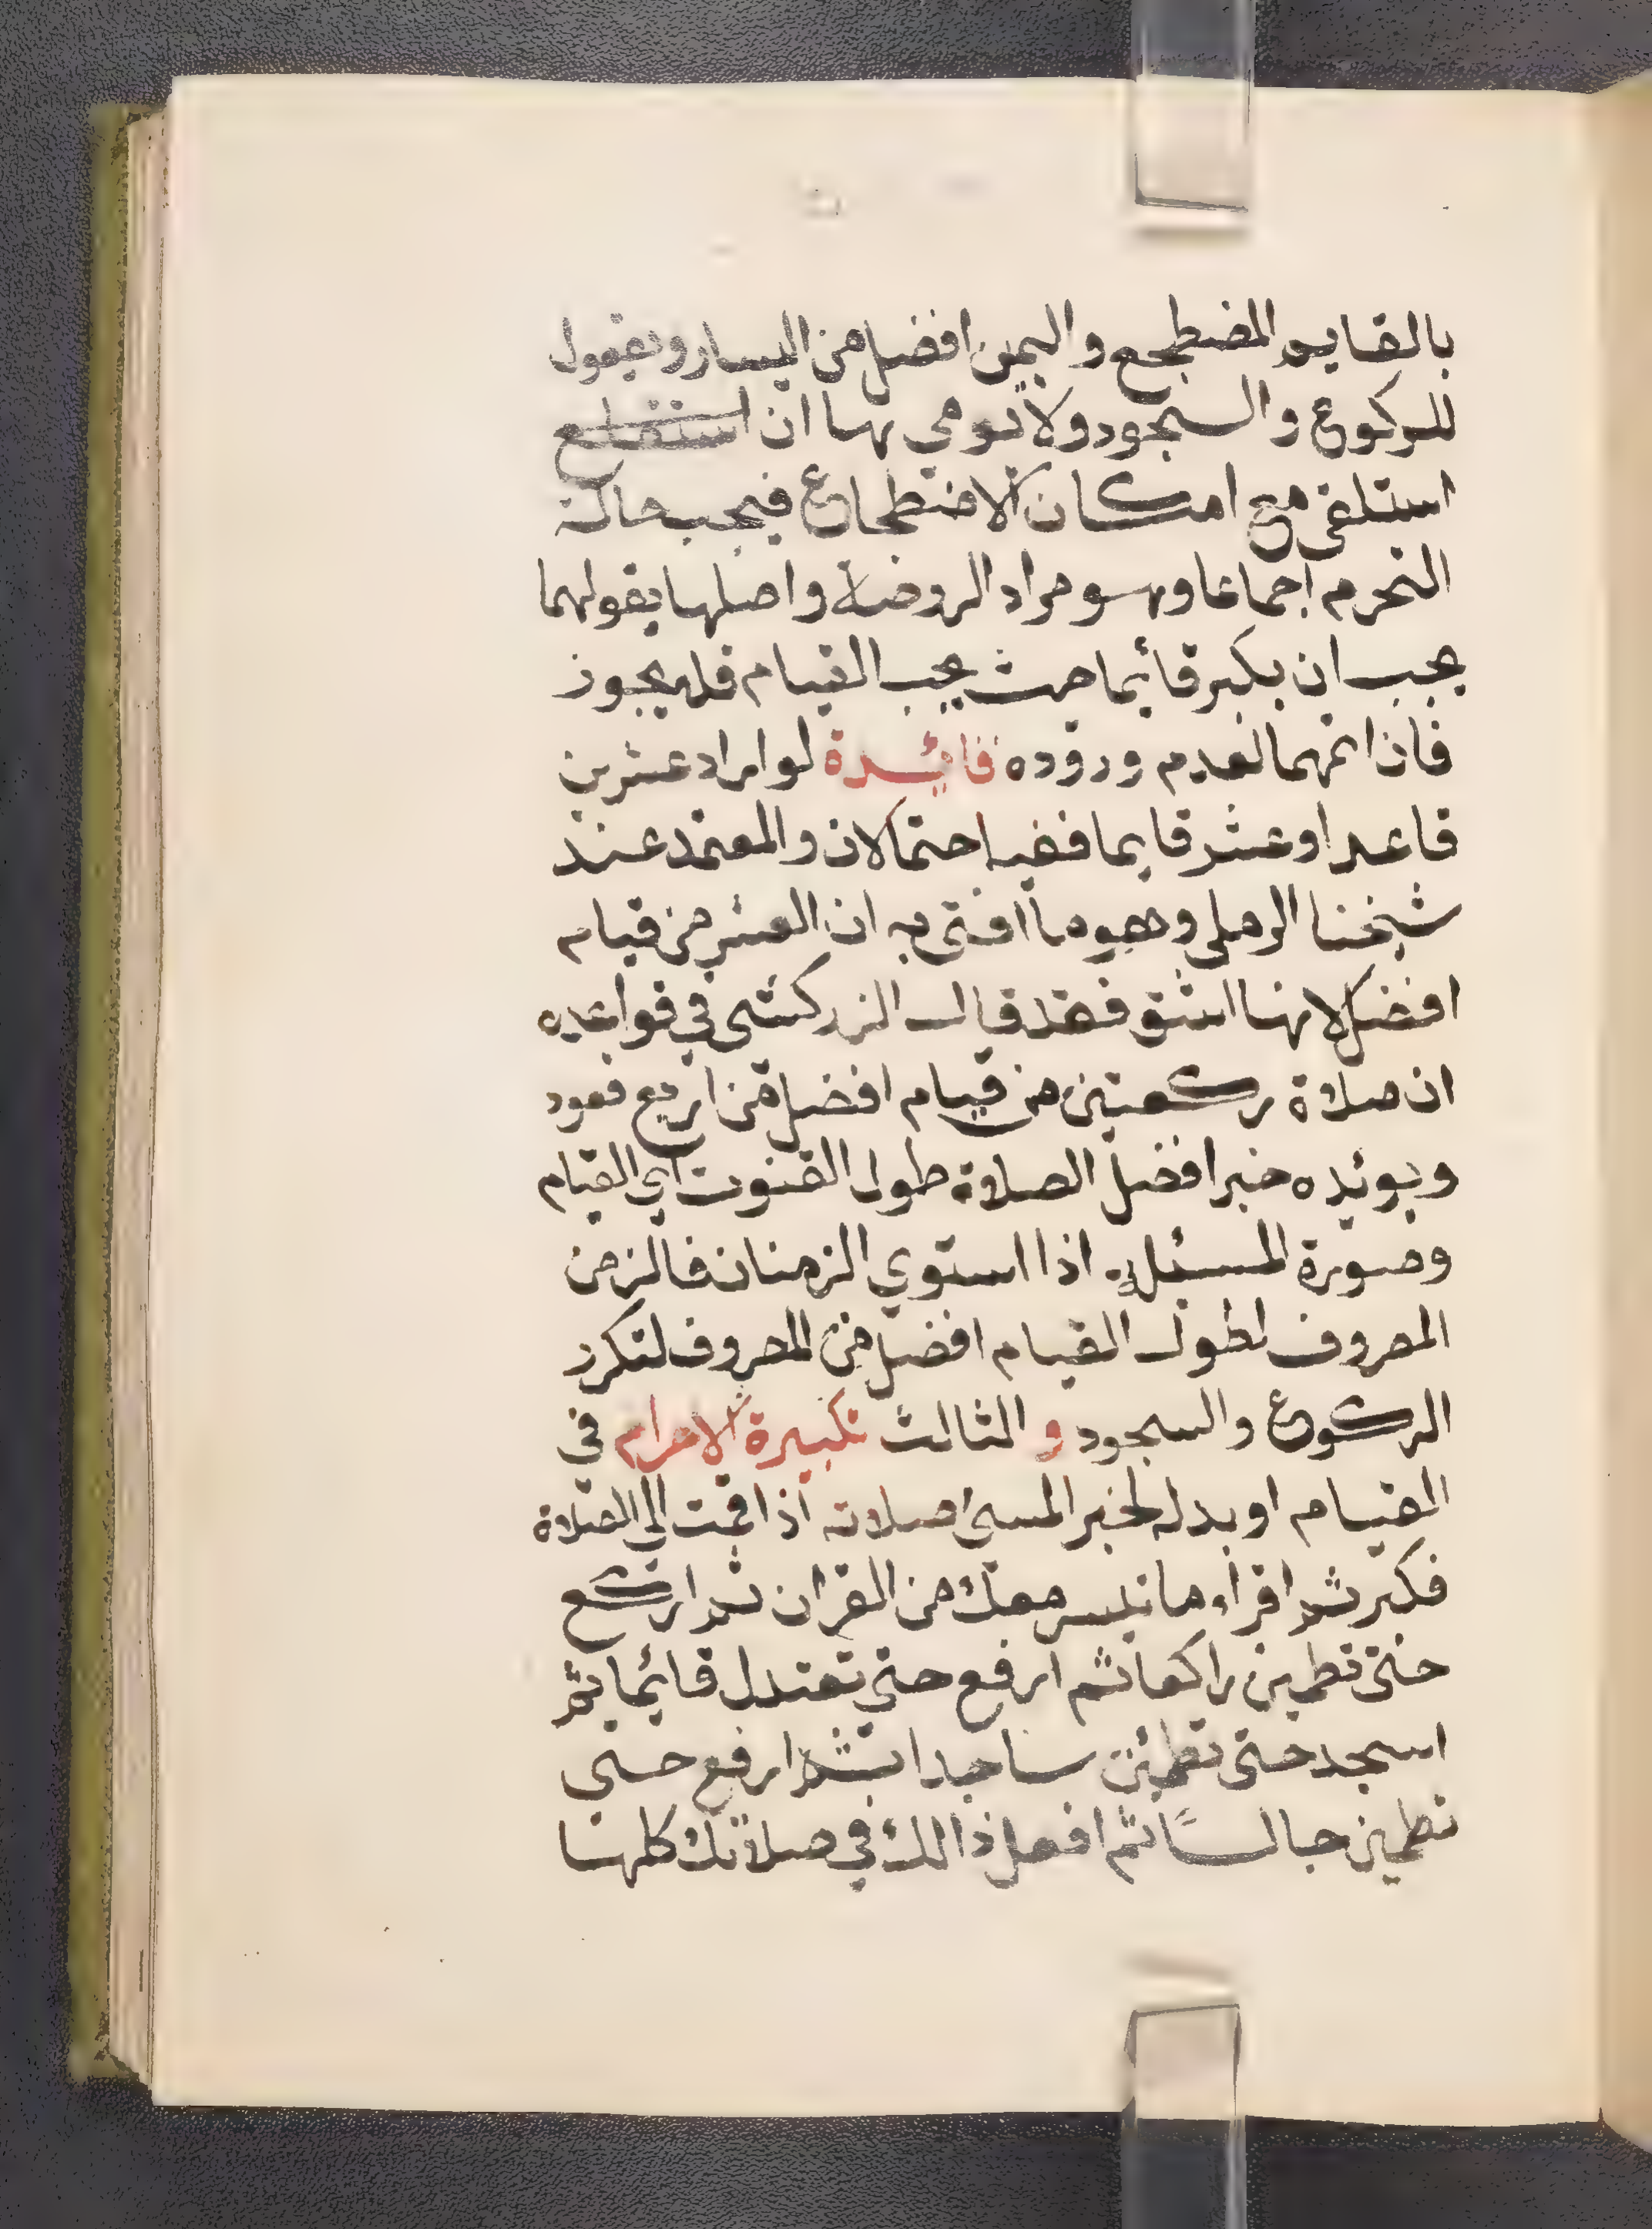 بالقايم المضطجع واليمين افضل من اليسار ويقعول
للركوع والسجود ولا يومي بها ان استطاع
استلقى مع امكان الاضطجاع فيجب حالة
التحرم اجماعا وهو مراد الروضة واصلها بقولهما
يجب ان يكبر قائما حيث يجب القيام فلا يجوز
فان اتمهما لعدم وروده فائدة لو اراد عشرين
قاعدا او عشر قايما ففيه احتمالان والمعتمد عند
شيخنا الرملي وهو ما افتى به ان العشر من قيام
افضل لانها اشق فقد قال الزركشي في قواعده
ان صلاة ركعتين من قيام افضل من اربع قعود
ويوئده خبر افضل الصلاة طول القنوت اي القيام
وصورة المسئلة اذا استوي الزمنان فالزمن
المصروف لطول القيام افضل من المصروف لتكرر
الركوع والسجود و الثالث تكبيرة الاحرام في
القيام او بدله لخبر المسئ صلاته اذا قمت الى الصلاة
فكبر ثم اقراء ما تيسر معك من القران ثم اركع
حتى تطمين راكعا ثم ارفع حتى تعتدل قائما ثم
اسجد حتى تطمئن ساجدا ثم ارفع حتى
تطمين جالسًا ثم افعل ذالك في صلاتك كلها